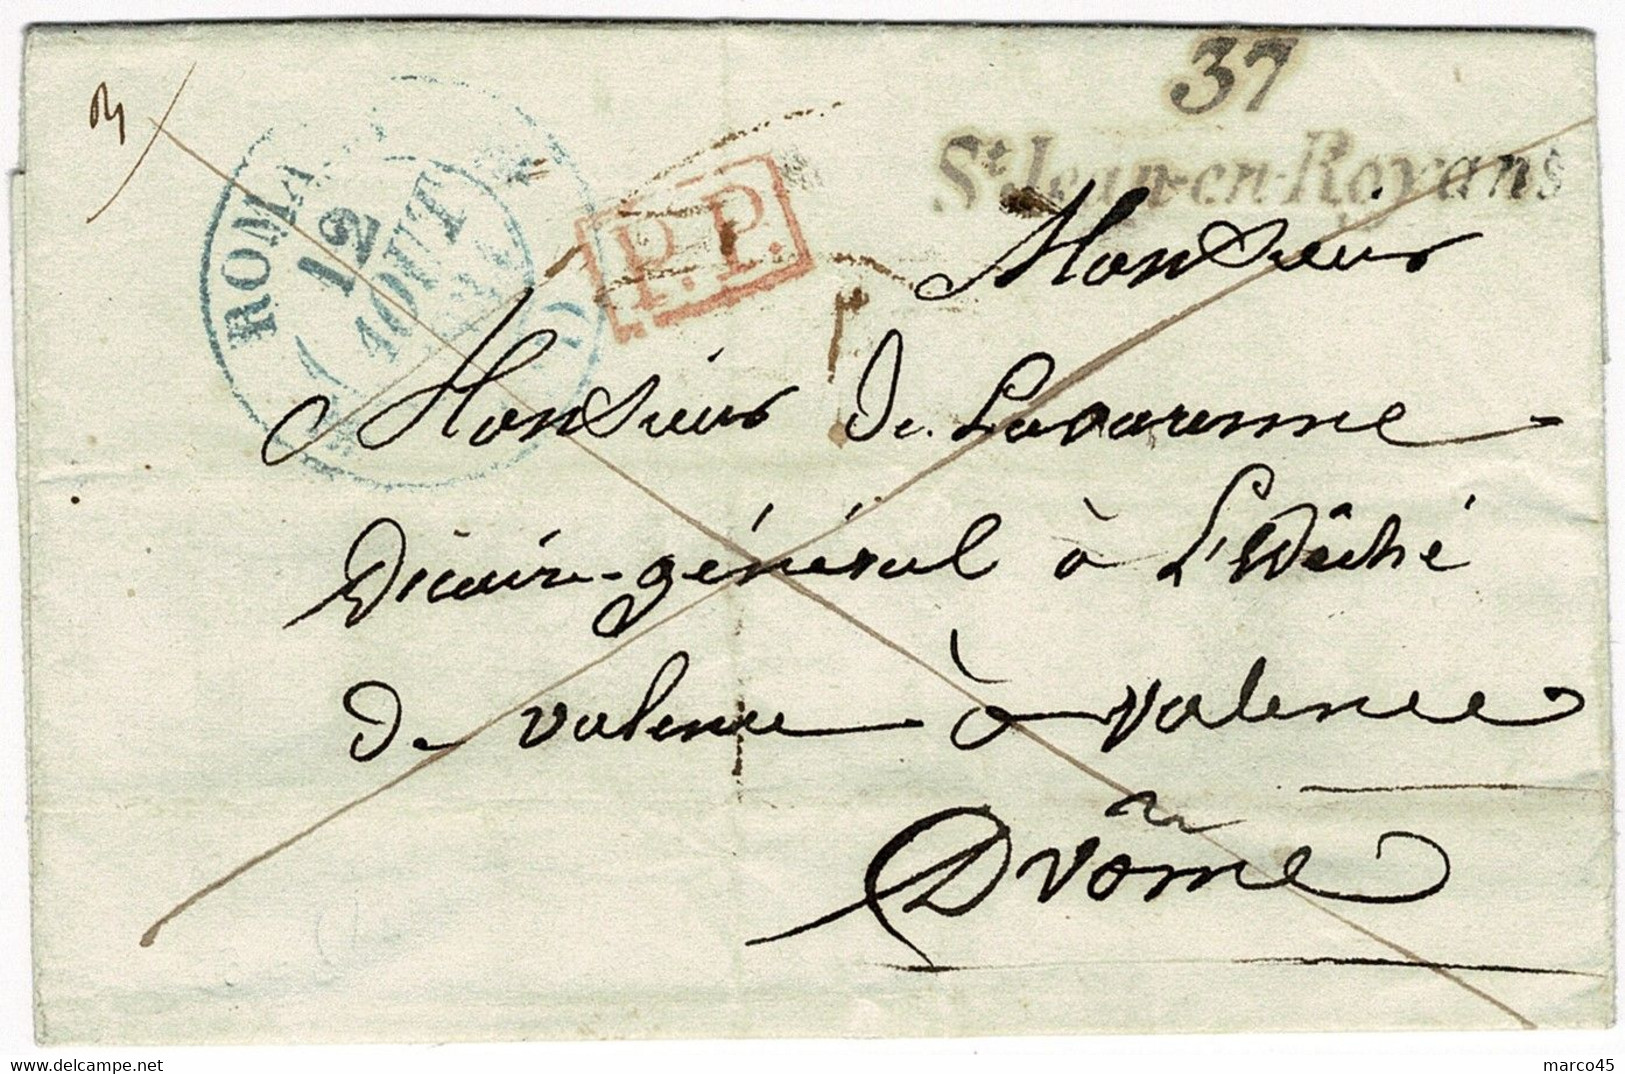 37
St Jean-en-Royans
ROMA
12
AOUT
P.P.
Monsieur
Monsieur de Lavarenne
vicaire-général à L'Evêché
de valence à valence
Drôme
marco45